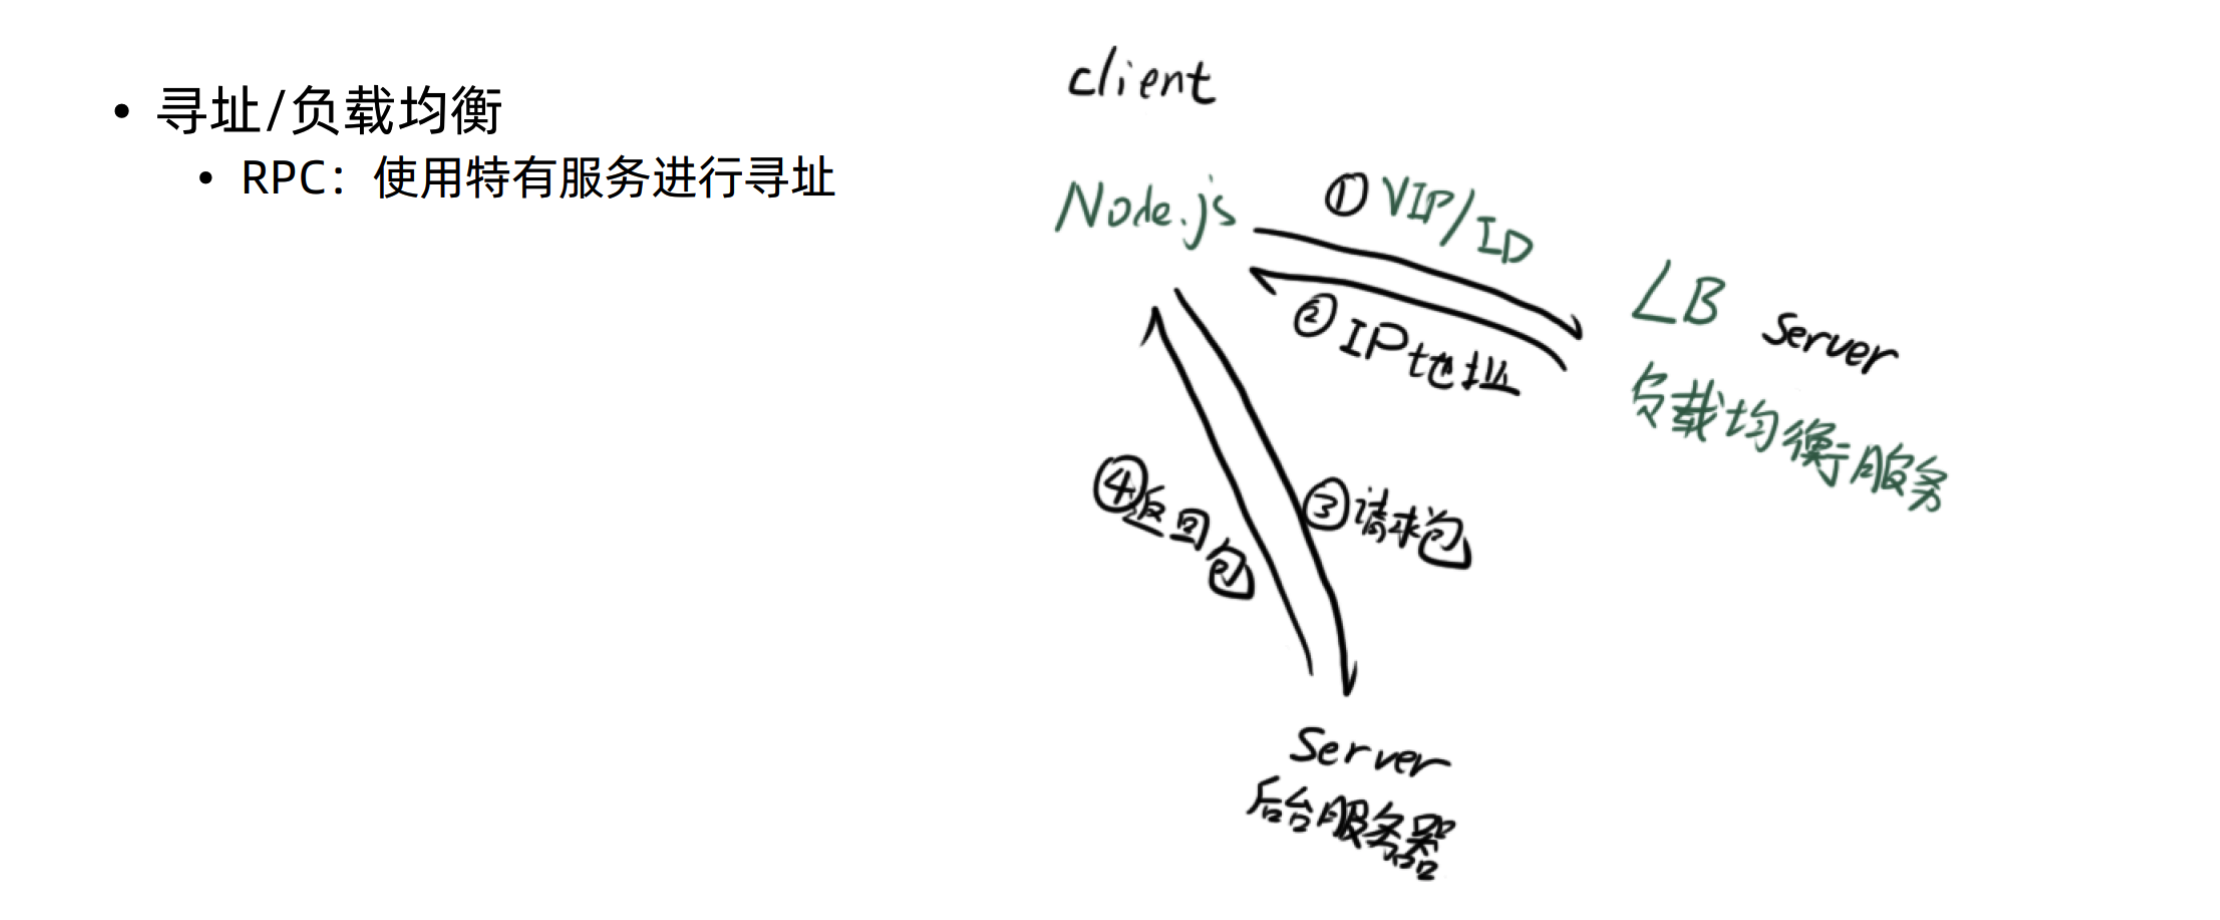 • 寻址/负载均衡
• RPC：使用特有服务进行寻址
client
Node.js
① VIP/ID
② IP地址
LB Server
负载均衡服务
③请求包
④返回包
Server
后台服务器